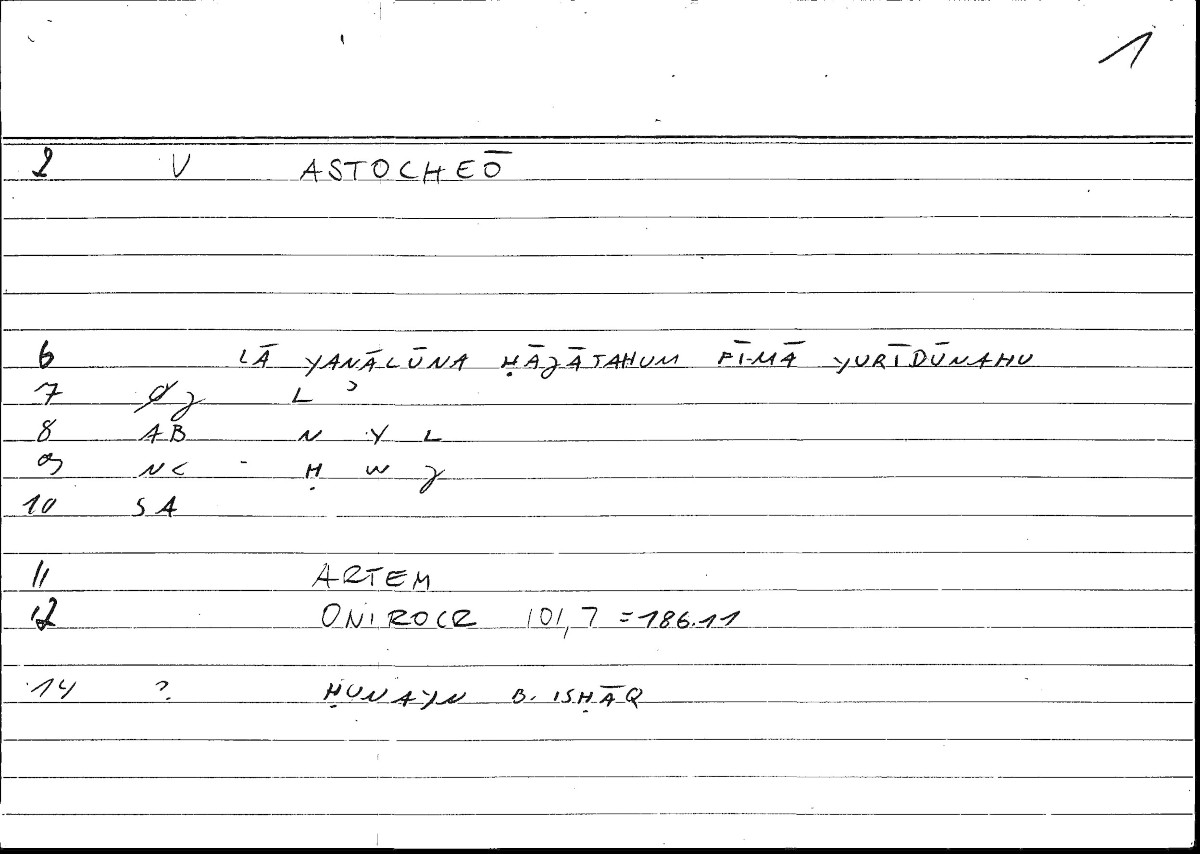 1
2 V ASTOCHEŌ
6 LĀ YANĀLŪNA ḤĀʒĀTAHUM FĪ-MĀ YURĪDŪNAHU
7 ʒ L ʾ
8 AB N Y L
9 NC - Ḥ W ʒ
10 SA
11 ARTEM
12 ONIROCR 101,7 =186.11
14 ? ḤUNAYN B. ISḤĀQ